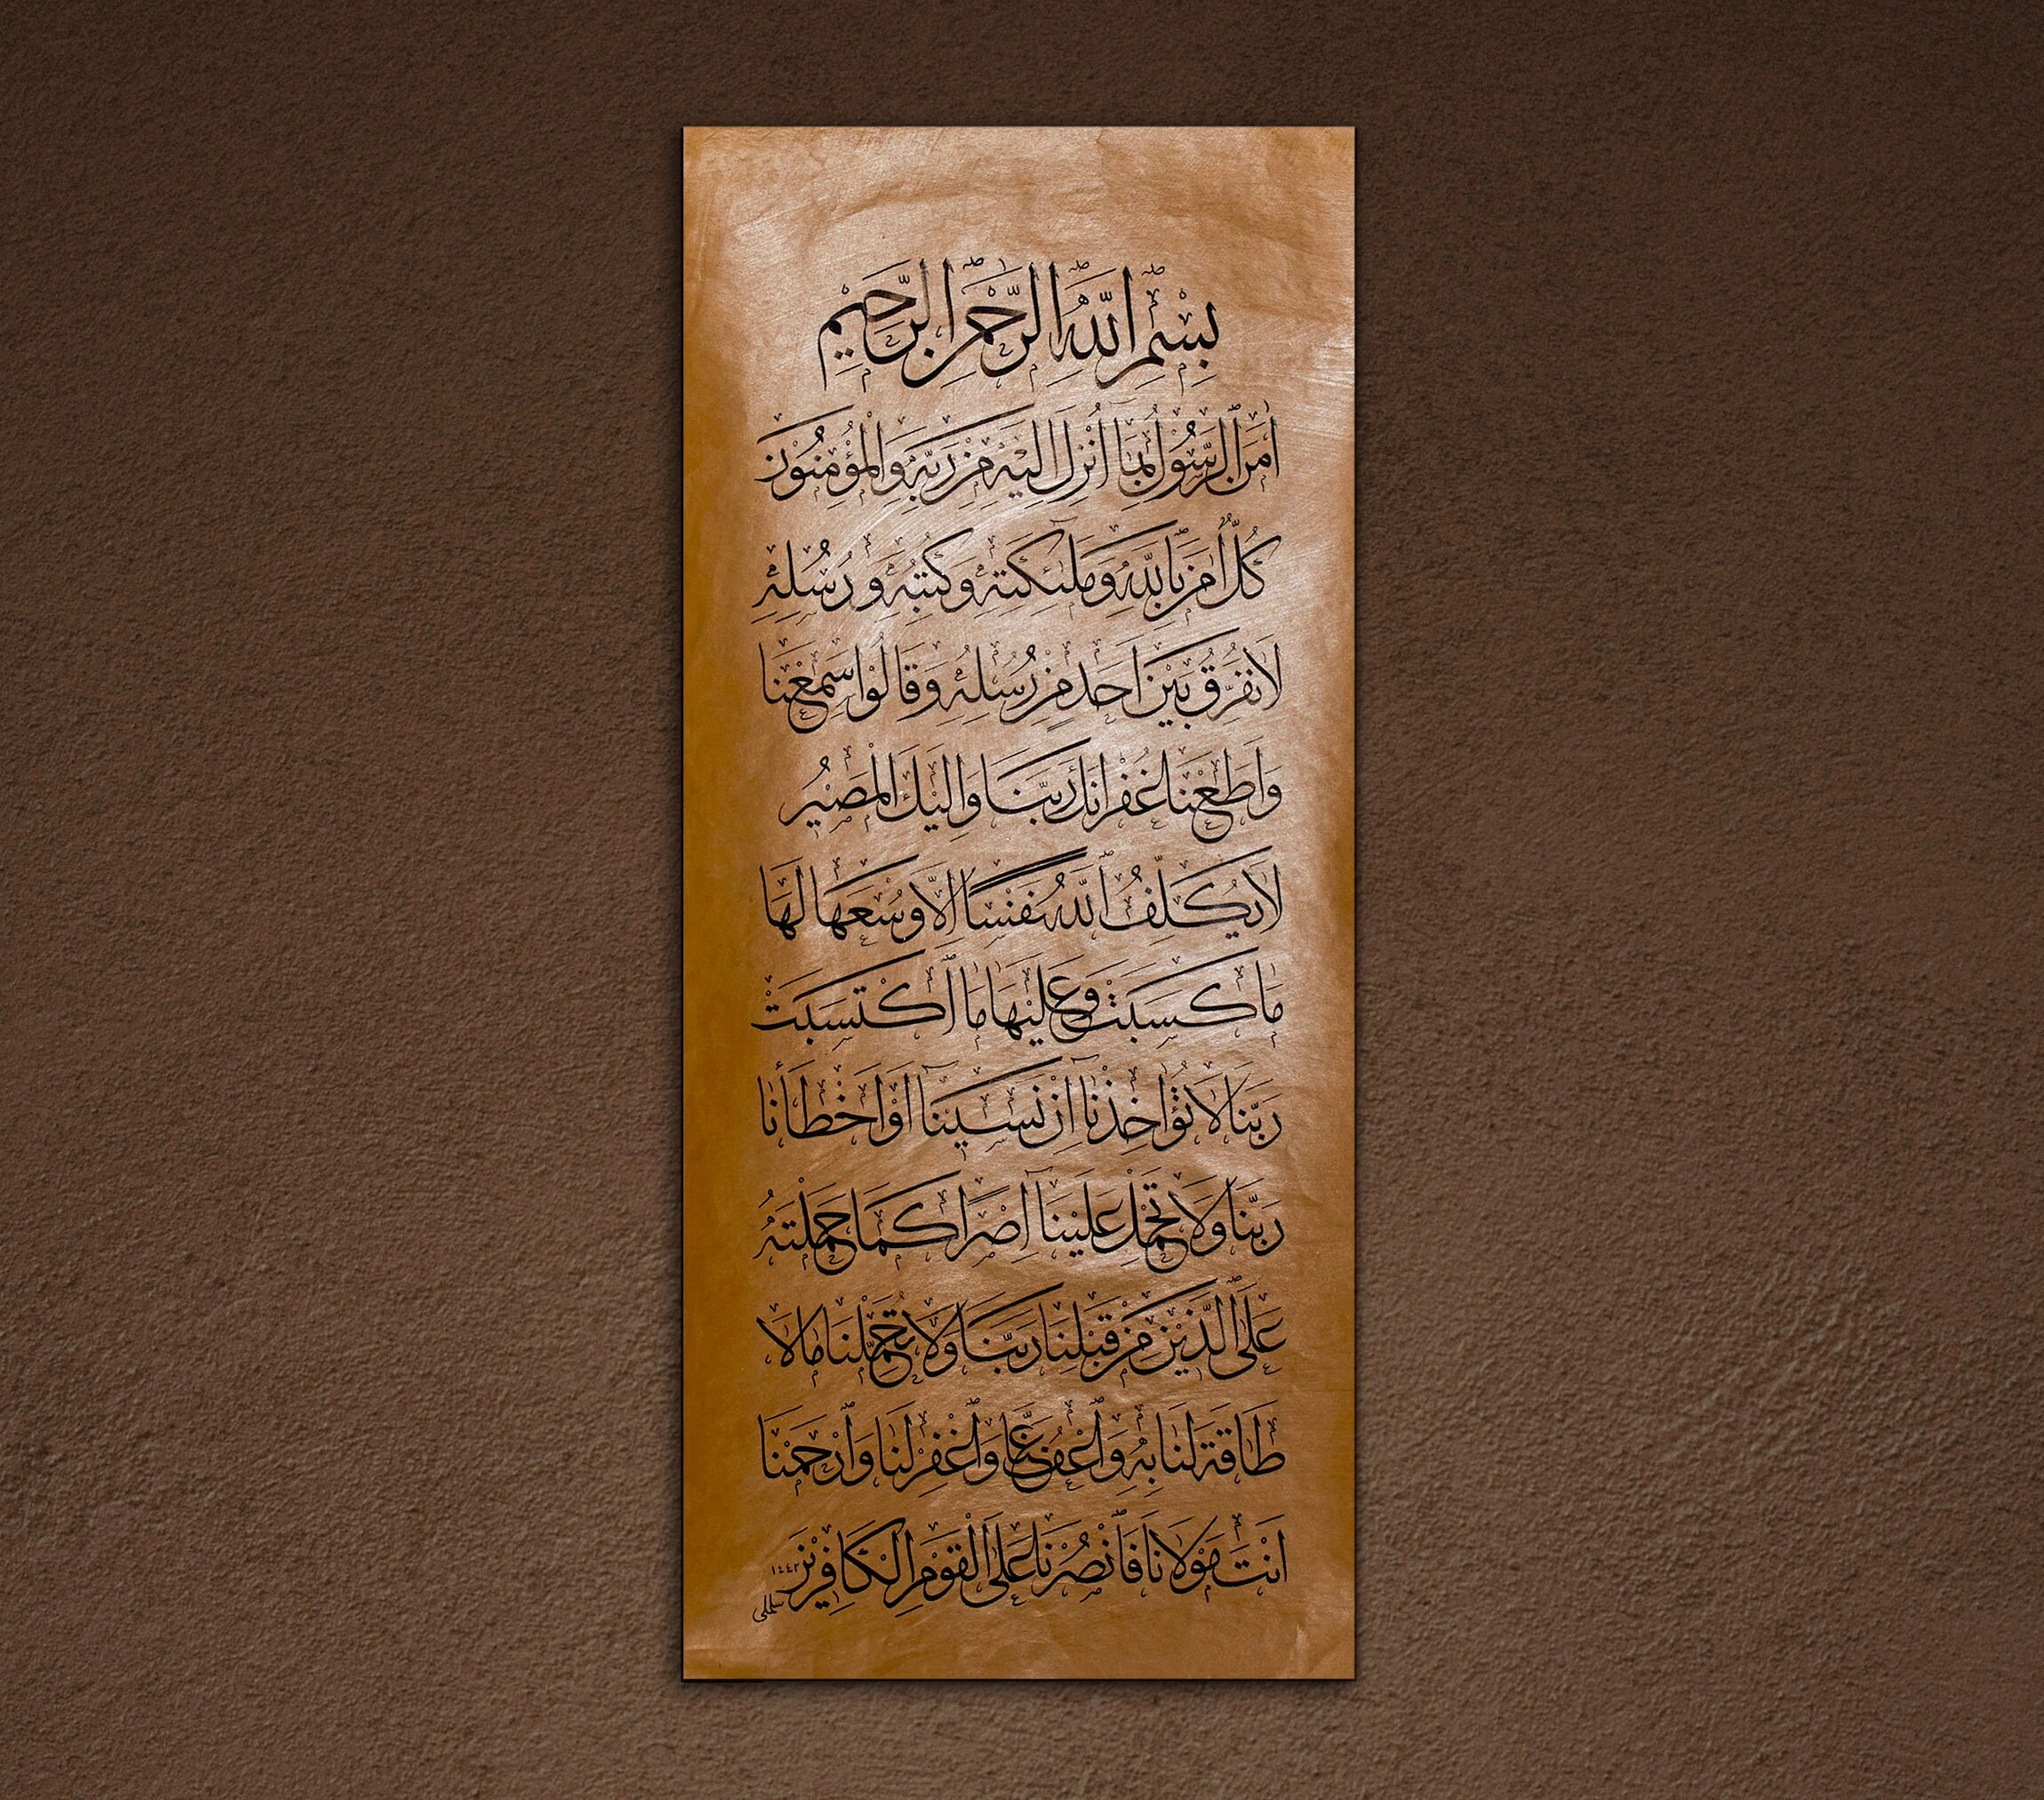 بِسْمِ اللّٰهِ الرَّحْمٰنِ الرَّحِيمِ
اٰمَنَ الرَّسُولُ بِمَا اُنْزِلَ اِلَيْهِ مِنْ رَبِّهِ وَالْمُؤْمِنُونَ
كُلٌّ اٰمَنَ بِاللّٰهِ وَمَلٰئِكَتِهِ وَكُتُبِهِ وَرُسُلِهِ
لَا نُفَرِّقُ بَيْنَ اَحَدٍ مِنْ رُسُلِهِ وَقَالُوا سَمِعْنَا
وَاَطَعْنَا غُفْرَانَكَ رَبَّنَا وَاِلَيْكَ الْمَصِيرُ
لَا يُكَلِّفُ اللّٰهُ نَفْسًا اِلَّا وُسْعَهَا لَهَا
مَا كَسَبَتْ وَعَلَيْهَا مَا اكْتَسَبَتْ
رَبَّنَا لَا تُؤَاخِذْنَا اِنْ نَسِينَا اَوْ اَخْطَأْنَا
رَبَّنَا وَلَا تَحْمِلْ عَلَيْنَا اِصْرًا كَمَا حَمَلْتَهُ
عَلَى الَّذِينَ مِنْ قَبْلِنَا رَبَّنَا وَلَا تُحَمِّلْنَا مَا لَا
طَاقَةَ لَنَا بِهِ وَاعْفُ عَنَّا وَاغْفِرْ لَنَا وَارْحَمْنَا
اَنْتَ مَوْلَانَا فَانْصُرْنَا عَلَى الْقَوْمِ الْكَافِرِينَ ١٤٤٢